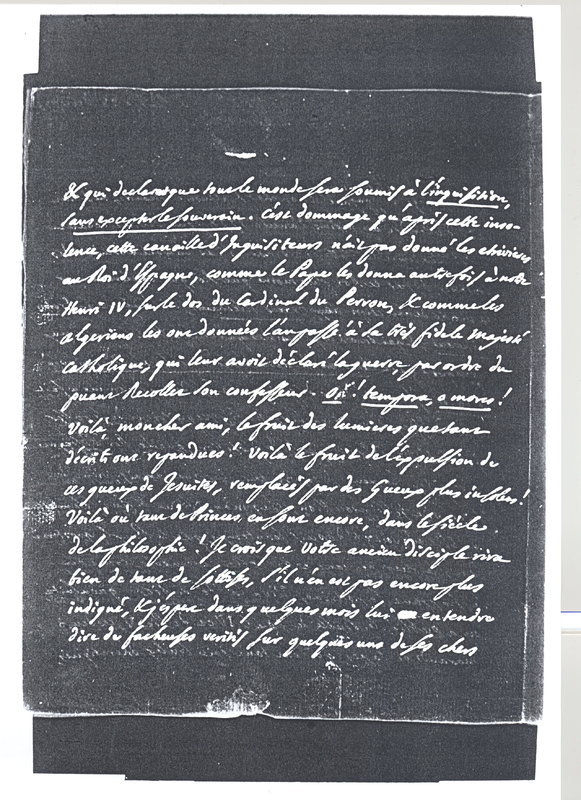 & qui declare que tout le monde sera soumis à l'inquisition,
sans excepter le souverain. C'est dommage qu'après cette inso-
lence, cette canaille d'Inquisiteurs n'ait pas donné les etrivieres
au Roi d'Espagne, comme le Pape les donna autrefois à notre
Henri IV, sur le dos du Cardinal du Perron, & comme les
algeriens les ont données l'an passé à sa très fidele majesté
catholique, qui leur avoit déclaré la guerre, par ordre du
puant Recollet son confesseur. O ! tempora, o mores !
Voilà, mon cher ami, le fruit des lumieres que tant
d'écrits ont repandues ! Voilà le fruit de l'expulsion de
ces gueux de Jesuites, remplacés par des Gueux plus insolens !
Voilà où tant de Princes en sont encore, dans le siècle
de la philosophie ! Je crois que votre ancien disciple rira
bien de tant de sottises, s'il n'en est pas encore plus
indigné, & j'espere dans quelques mois lui entendre
dire de facheuses verités sur quelques uns de ses chers